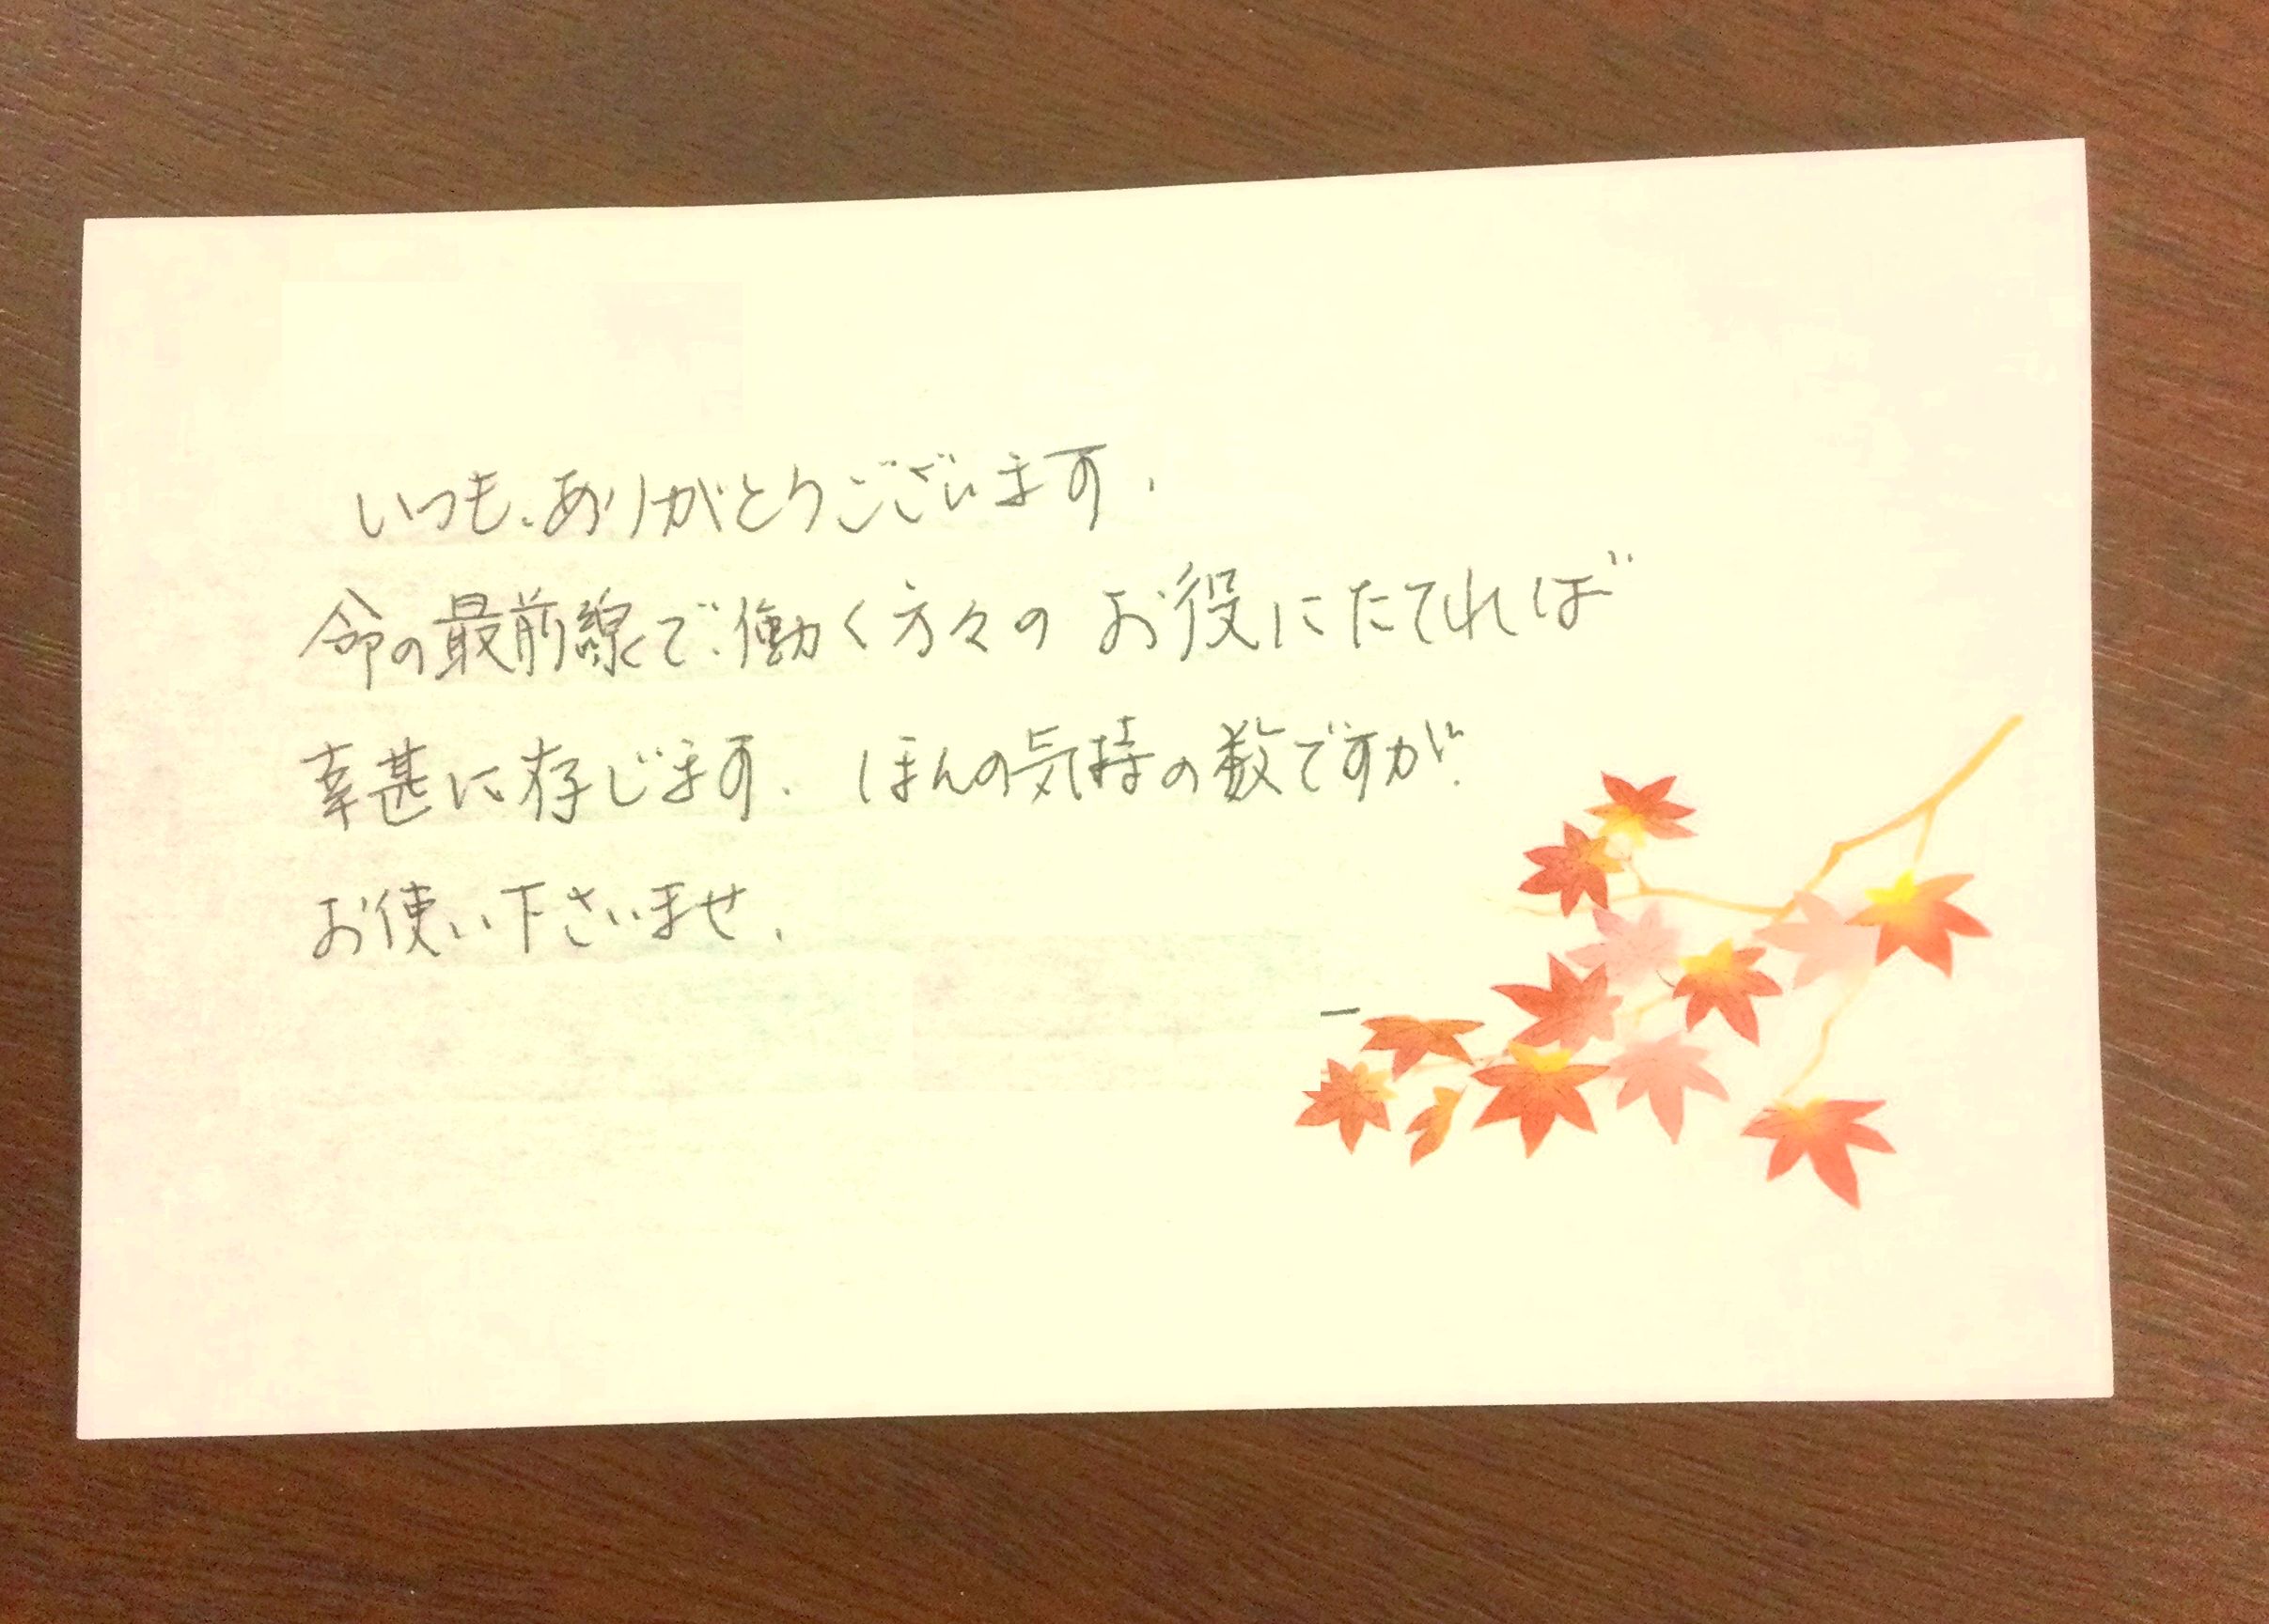 いつも、ありがとうございます.
命の最前線で働く方々のお役にたてれば
幸甚に存じます. ほんの気持の数ですが.
お使い下さいませ.